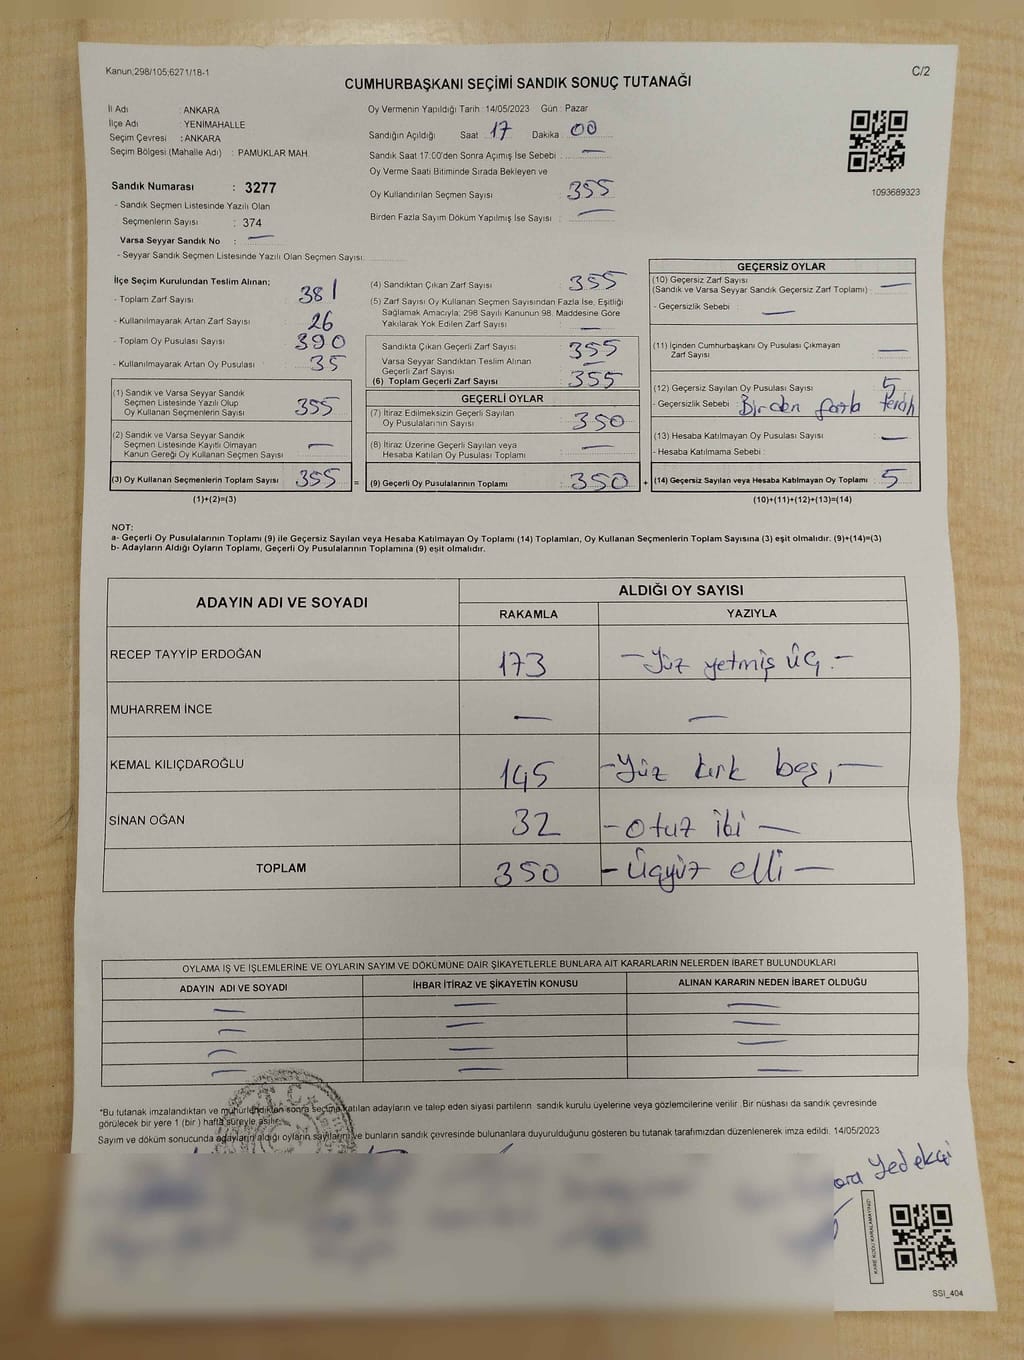 Kanun;298/105;6271/18-1
C/2
CUMHURBAŞKANI SEÇİMİ SANDIK SONUÇ TUTANAĞI
İl Adı : ANKARA
İlçe Adı : YENİMAHALLE
Seçim Çevresi : ANKARA
Seçim Bölgesi (Mahalle Adı) : PAMUKLAR MAH.
Sandık Numarası : 3277
- Sandık Seçmen Listesinde Yazılı Olan
Seçmenlerin Sayısı : 374
Varsa Seyyar Sandık No : —
- Seyyar Sandık Seçmen Listesinde Yazılı Olan Seçmen Sayısı:
Oy Vermenin Yapıldığı Tarih : 14/05/2023 Gün : Pazar
Sandığın Açıldığı Saat 17 Dakika 00
Sandık Saat 17:00'den Sonra Açımış İse Sebebi : —
Oy Verme Saati Bitiminde Sırada Bekleyen ve
Oy Kullandırılan Seçmen Sayısı : 355
Birden Fazla Sayım Döküm Yapılmış İse Sayısı : —
1093689323
İlçe Seçim Kurulundan Teslim Alınan;
- Toplam Zarf Sayısı : 381
- Kullanılmayarak Artan Zarf Sayısı : 26
- Toplam Oy Pusulası Sayısı : 390
- Kullanılmayarak Artan Oy Pusulası : 35
(1) Sandık ve Varsa Seyyar Sandık
Seçmen Listesinde Yazılı Olup
Oy Kullanan Seçmenlerin Sayısı : 355
(2) Sandık ve Varsa Seyyar Sandık
Seçmen Listesinde Kayıtlı Olmayan
Kanun Gereği Oy Kullanan Seçmen Sayısı : —
(3) Oy Kullanan Seçmenlerin Toplam Sayısı : 355 =
(1)+(2)=(3)
(4) Sandıktan Çıkan Zarf Sayısı : 355
(5) Zarf Sayısı Oy Kullanan Seçmen Sayısından Fazla İse, Eşitliği
Sağlamak Amacıyla; 298 Sayılı Kanunun 98. Maddesine Göre
Yakılarak Yok Edilen Zarf Sayısı : —
Sandıkta Çıkan Geçerli Zarf Sayısı : 355
Varsa Seyyar Sandıktan Teslim Alınan
Geçerli Zarf Sayısı : —
(6) Toplam Geçerli Zarf Sayısı : 355
GEÇERLİ OYLAR
(7) İtiraz Edilmeksizin Geçerli Sayılan
Oy Pusulalarının Sayısı : 350
(8) İtiraz Üzerine Geçerli Sayılan veya
Hesaba Katılan Oy Pusulası Toplamı : —
(9) Geçerli Oy Pusulalarının Toplamı : 350 +
GEÇERSİZ OYLAR
(10) Geçersiz Zarf Sayısı
(Sandık ve Varsa Seyyar Sandık Geçersiz Zarf Toplamı) : —
- Geçersizlik Sebebi : —
(11) İçinden Cumhurbaşkanı Oy Pusulası Çıkmayan
Zarf Sayısı : —
(12) Geçersiz Sayılan Oy Pusulası Sayısı : 5
- Geçersizlik Sebebi : Birden fazla tercih
(13) Hesaba Katılmayan Oy Pusulası Sayısı : —
- Hesaba Katılmama Sebebi :
(14) Geçersiz Sayılan veya Hesaba Katılmayan Oy Toplamı : 5
(10)+(11)+(12)+(13)=(14)
NOT:
a- Geçerli Oy Pusulalarının Toplamı (9) ile Geçersiz Sayılan veya Hesaba Katılmayan Oy Toplamı (14) Toplamları, Oy Kullanan Seçmenlerin Toplam Sayısına (3) eşit olmalıdır. (9)+(14)=(3)
b- Adayların Aldığı Oyların Toplamı, Geçerli Oy Pusulalarının Toplamına (9) eşit olmalıdır.
ADAYIN ADI VE SOYADI
ALDIĞI OY SAYISI
RAKAMLA YAZIYLA
RECEP TAYYİP ERDOĞAN 173 — Yüz yetmiş üç. —
MUHARREM İNCE — —
KEMAL KILIÇDAROĞLU 145 — Yüz kırk beş, —
SİNAN OĞAN 32 — otuz iki —
TOPLAM 350 — Üçyüz elli —
OYLAMA İŞ VE İŞLEMLERİNE VE OYLARIN SAYIM VE DÖKÜMÜNE DAİR ŞİKAYETLERLE BUNLARA AİT KARARLARIN NELERDEN İBARET BULUNDUKLARI
ADAYIN ADI VE SOYADI İHBAR İTİRAZ VE ŞİKAYETİN KONUSU ALINAN KARARIN NEDEN İBARET OLDUĞU
— — —
— — —
— — —
— — —
*Bu tutanak imzalandıktan ve mühürlendikten sonra seçime katılan adayların ve talep eden siyasi partilerin sandık kurulu üyelerine veya gözlemcilerine verilir. Bir nüshası da sandık çevresinde
görülecek bir yere 1 (bir) hafta süreyle asılır.
Sayım ve döküm sonucunda adayların aldığı oyların sayılarını ve bunların sandık çevresinde bulunanlara duyurulduğunu gösteren bu tutanak tarafımızdan düzenlenerek imza edildi. 14/05/2023
KARE KODU KARALAMAYINIZ!
SSI_404